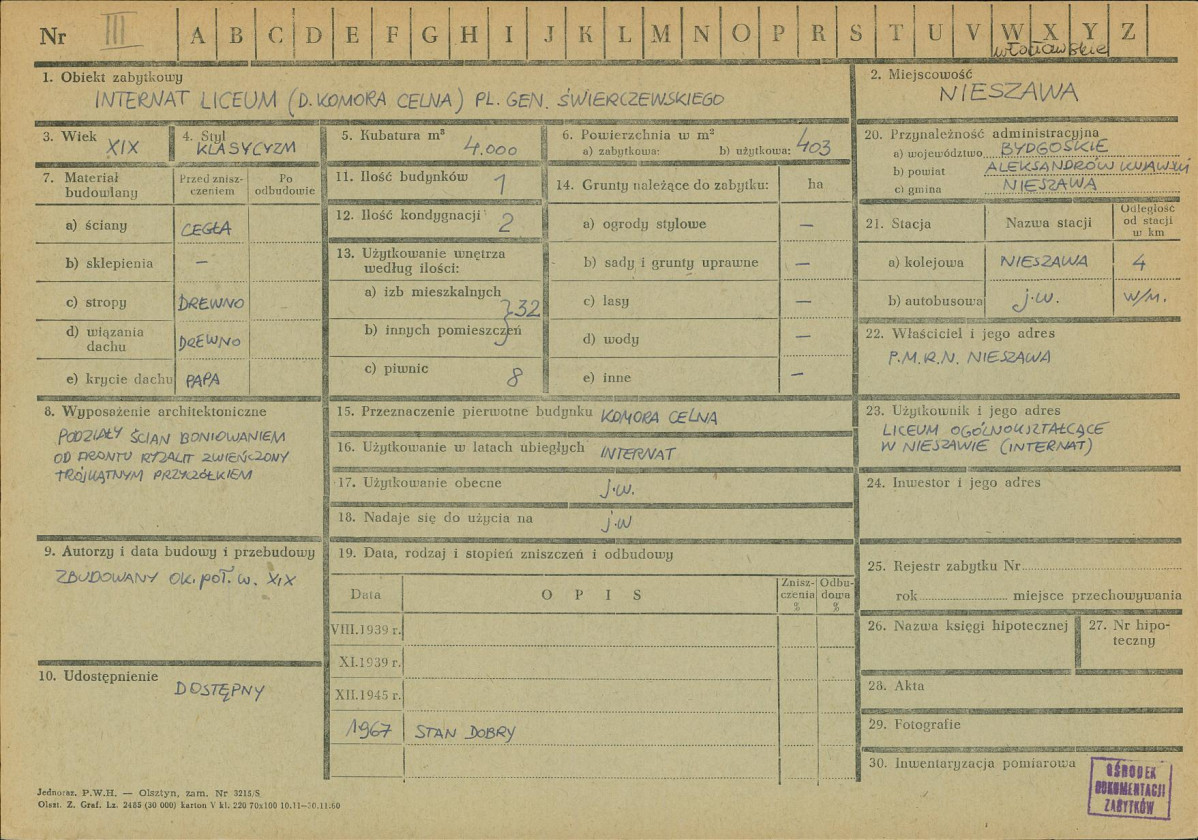 Nr III A B C D E F G H I J K L M N O P R S T U V W X Y Z
włocławskie
1. Obiekt zabytkowy
INTERNAT LICEUM (D. KOMORA CELNA) PL. GEN. ŚWIERCZEWSKIEGO
2. Miejscowość
NIESZAWA
3. Wiek XIX
4. Styl KLASYCYZM
5. Kubatura m³ 4.000
6. Powierzchnia w m²
a) zabytkowa: b) użytkowa: 403
20. Przynależność administracyjna
a) województwo BYDGOSKIE
b) powiat ALEKSANDRÓW KUJAWSKI
c) gmina NIESZAWA
7. Materiał budowlany
Przed znisz-
czeniem
Po
odbudowie
a) ściany CEGŁA
b) sklepienia —
c) stropy DREWNO
d) wiązania
dachu DREWNO
e) krycie dachu PAPA
11. Ilość budynków 1
12. Ilość kondygnacji 2
13. Użytkowanie wnętrza
według ilości:
a) izb mieszkalnych
} 32
b) innych pomieszczeń
c) piwnic 8
14. Grunty należące do zabytku: ha
a) ogrody stylowe —
b) sady i grunty uprawne —
c) lasy —
d) wody —
e) inne —
21. Stacja Nazwa stacji Odległość
od stacji
w km
a) kolejowa NIESZAWA 4
b) autobusowa j.w. W/M.
22. Właściciel i jego adres
P.M.R.N. NIESZAWA
8. Wyposażenie architektoniczne
PODZIAŁY ŚCIAN BONIOWANIEM
OD FRONTU RYZALIT ZWIEŃCZONY
TRÓJKĄTNYM PRZYCZÓŁKIEM
15. Przeznaczenie pierwotne budynku KOMORA CELNA
16. Użytkowanie w latach ubiegłych INTERNAT
17. Użytkowanie obecne j.w.
18. Nadaje się do użycia na j.w
23. Użytkownik i jego adres
LICEUM OGÓLNOKSZTAŁCĄCE
W NIESZAWIE (INTERNAT)
24. Inwestor i jego adres
9. Autorzy i data budowy i przebudowy
ZBUDOWANY OK. POŁ. W. XIX
10. Udostępnienie
DOSTĘPNY
19. Data, rodzaj i stopień zniszczeń i odbudowy
Data OPIS Znisz-
czenia
% Odbu-
dowa
%
VIII.1939 r.
XI.1939 r.
XII.1945 r.
1967 STAN DOBRY
25. Rejestr zabytku Nr
rok miejsce przechowywania
26. Nazwa księgi hipotecznej
27. Nr hipo-
teczny
28. Akta
29. Fotografie
30. Inwentaryzacja pomiarowa
OŚRODEK
DOKUMENTACJI
ZABYTKÓW
Jednoraz. P.W.H. — Olsztyn, zam. Nr 3215/S
Olszt. Z. Graf. Lz. 2485 (30 000) karton V kl. 220 70x100 10.11—30.11.60